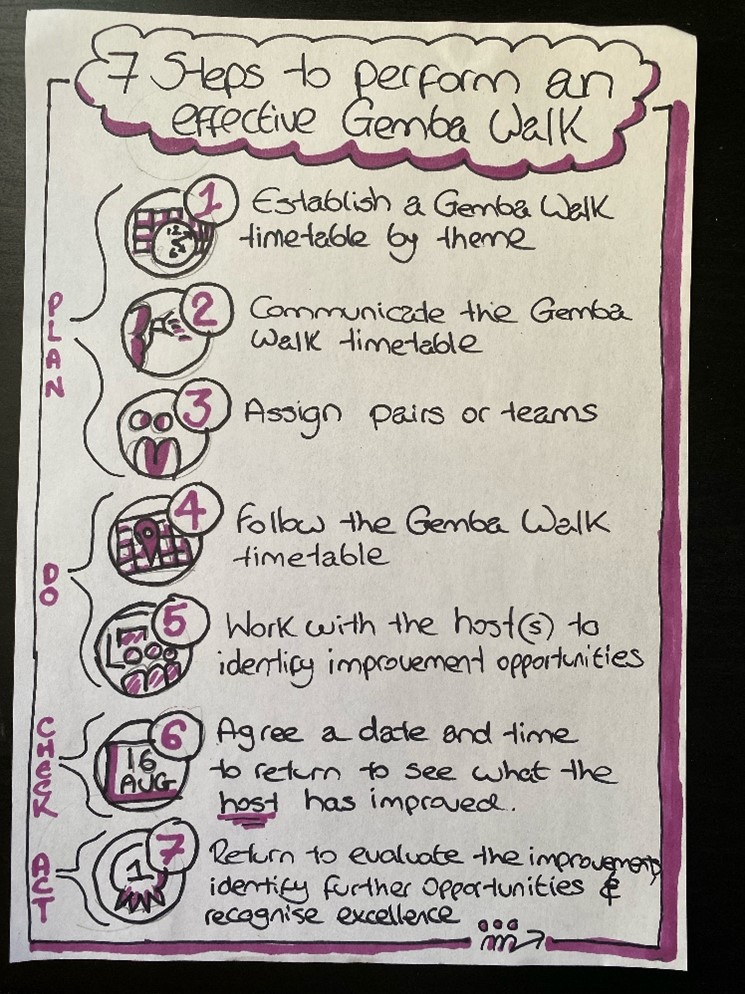 7 Steps to perform an
effective Gemba Walk
PLAN
1
Establish a Gemba Walk
timetable by theme
2
Communicate the Gemba
Walk timetable
3
Assign pairs or teams
DO
4
Follow the Gemba Walk
timetable
5
Work with the host(s) to
identify improvement opportunities
CHECK
6
16
AUG
Agree a date and time
to return to see what the
host has improved.
ACT
7
1
Return to evaluate the improvements,
identify further opportunities &
recognise excellence